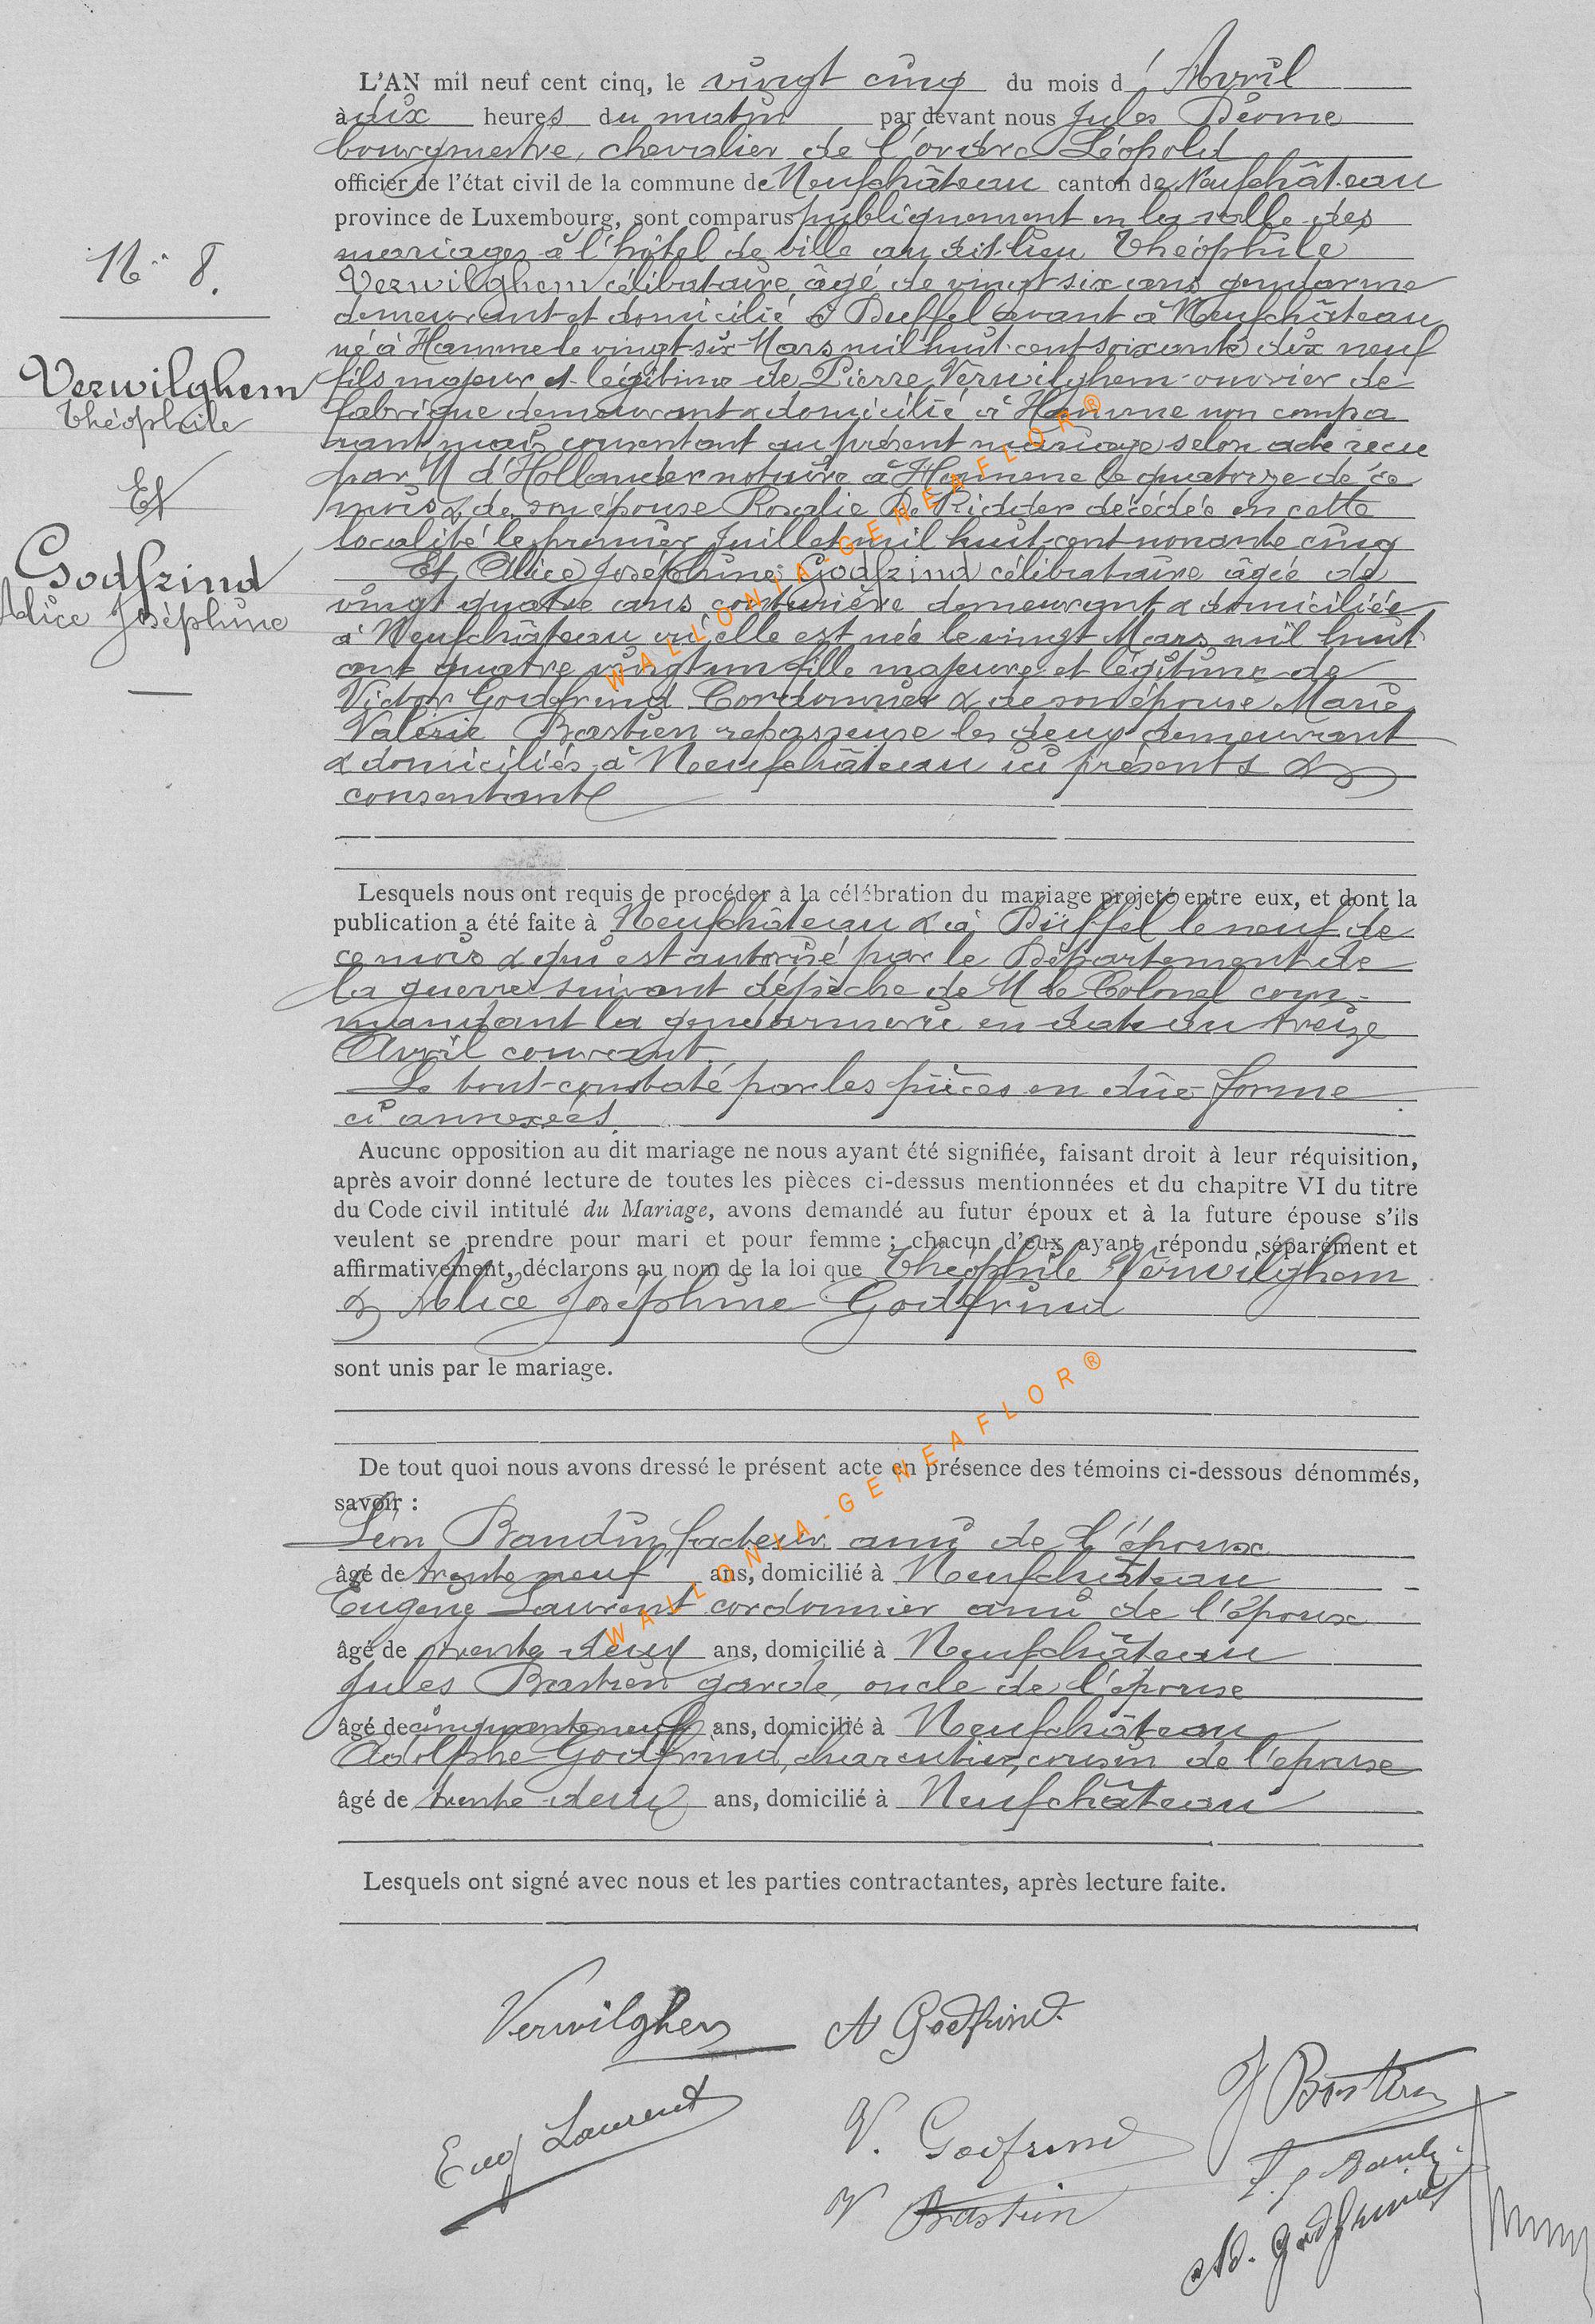 L'AN mil neuf cent cinq, le vingt cinq du mois d'Avril
à dix heures du matin par devant nous Jules Déome
bourgmestre, chevalier de l'ordre Léopold
officier de l'état civil de la commune de Neufchâteau canton de Neufchâteau
province de Luxembourg, sont comparus publiquement en la salle des
mariages à l'hôtel de ville au dit lieu Théophile
Verwilghem célibataire âgé de vingt six ans gendarme
demeurant et domicilié à Duffel avant à Neufchâteau
né à Hamme le vingt-six Mars mil huit cent soixante dix neuf
fils majeur et légitime de Pierre Verwilghem ouvrier de
fabrique demeurant & domicilié à Hamme non compa
rant mais consentant au présent mariage selon acte reçu
par M d'Hollander notaire à Hamme le quatorze de ce
mois & de son épouse Rosalie De Ridder décédée en cette
localité le premier Juillet mil huit cent nonante cinq
Et Alice Joséphine Godfrind célibataire âgée de
vingt quatre ans couturière demeurant & domiciliée
à Neufchâteau où elle est née le vingt Mars mil huit
cent quatre vingt un fille majeure et légitime de
Victor Godfrind Cordonnier & de son épouse Marie
Valérie Bastien repasseuse les deux demeurant
& domiciliés à Neufchâteau ici présents &
consentants
N° 8.
Verwilghem
Théophile
Et
Godfrind
Alice Joséphine
Lesquels nous ont requis de procéder à la célébration du mariage projeté entre eux, et dont la
publication a été faite à Neufchâteau & à Duffel le neuf de
ce mois & qui est autorisé par le Département de
la guerre suivant dépêche de M le Colonel com-
mandant la gendarmerie en date du treize
Avril courant
Le tout constaté par les pièces en due forme
ci annexées.
Aucune opposition au dit mariage ne nous ayant été signifiée, faisant droit à leur réquisition,
après avoir donné lecture de toutes les pièces ci-dessus mentionnées et du chapitre VI du titre
du Code civil intitulé du Mariage, avons demandé au futur époux et à la future épouse s'ils
veulent se prendre pour mari et pour femme ; chacun d'eux ayant répondu séparément et
affirmativement, déclarons au nom de la loi que Théophile Verwilghem
& Alice Joséphine Godfrind
sont unis par le mariage.
De tout quoi nous avons dressé le présent acte en présence des témoins ci-dessous dénommés,
savoir :
Léon Baudin, facteur ami de l'époux
âgé de trente neuf ans, domicilié à Neufchâteau
Eugène Laurent cordonnier ami de l'époux
âgé de trente deux ans, domicilié à Neufchâteau
Jules Bastien garde, oncle de l'épouse
âgé de cinquante neuf ans, domicilié à Neufchâteau
Adolphe Godfrind, charcutier, cousin de l'épouse
âgé de trente deux ans, domicilié à Neufchâteau
Lesquels ont signé avec nous et les parties contractantes, après lecture faite.
Verwilghen A Godfrind.
J Bastien
Eug Laurent V. Godfrind
V Bastien
Ad. Godfrind
WALLONIA-GENEAFLOR®
WALLONIA-GENEAFLOR®